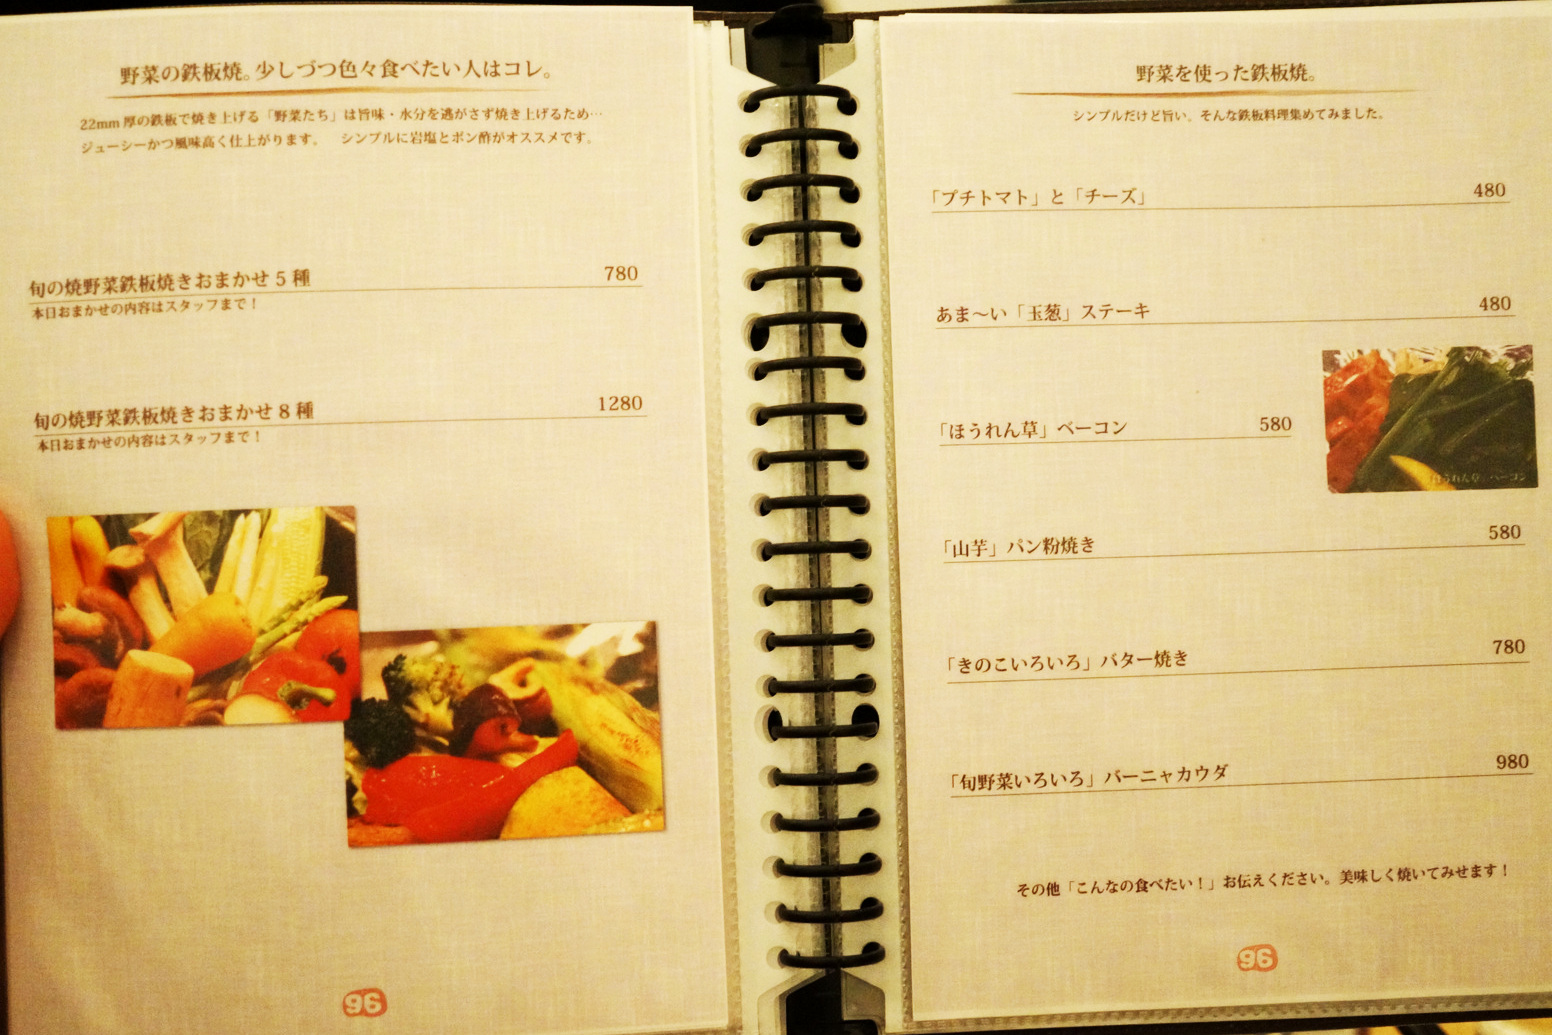 野菜の鉄板焼。少しづつ色々食べたい人はコレ。
22mm厚の鉄板で焼き上げる「野菜たち」は旨味・水分を逃がさず焼き上げるため…
ジューシーかつ風味高く仕上がります。　シンプルに岩塩とポン酢がオススメです。
旬の焼野菜鉄板焼きおまかせ5種 780
本日おまかせの内容はスタッフまで！
旬の焼野菜鉄板焼きおまかせ8種 1280
本日おまかせの内容はスタッフまで！
96
野菜を使った鉄板焼。
シンプルだけど旨い。そんな鉄板料理集めてみました。
「プチトマト」と「チーズ」 480
あま〜い「玉葱」ステーキ 480
「ほうれん草」ベーコン 580
「ほうれん草」ベーコン
「山芋」パン粉焼き 580
「きのこいろいろ」バター焼き 780
「旬野菜いろいろ」バーニャカウダ 980
その他「こんなの食べたい！」お伝えください。美味しく焼いてみせます！
96